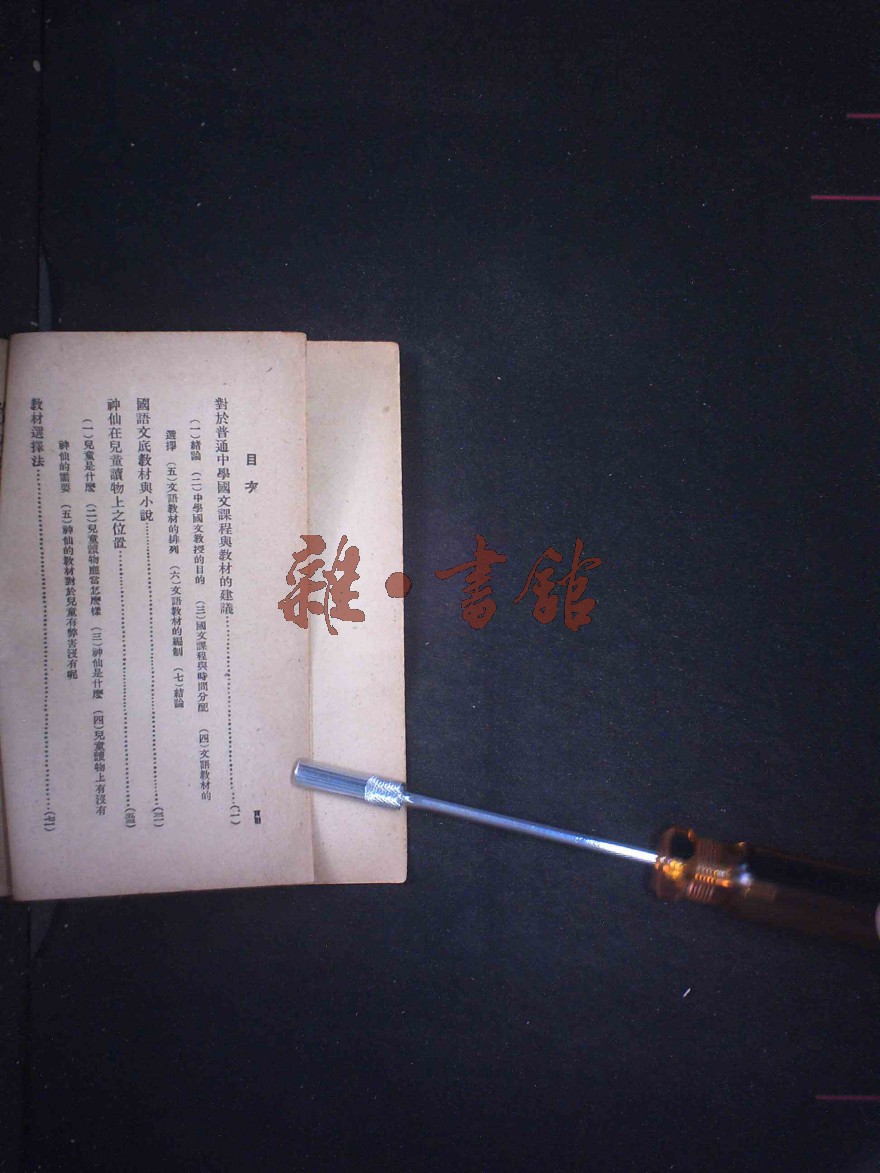 目次
頁數
對於普通中學國文課程與教材的建議……(一)
(一)緒論 (二)中學國文教授的目的 (三)國文課程與時間分配 (四)文語教材的
選擇 (五)文語教材的排列 (六)文語教材的編制 (七)結論
國語文底教材與小說……(三一)
神仙在兒童讀物上之位置……(五三)
(一)兒童是什麼 (二)兒童讀物應當怎麼樣 (三)神仙是什麼 (四)兒童讀物上有沒有
神仙的需要 (五)神仙的教材對於兒童有弊害沒有呢
教材選擇法……(七一)
雜·書館